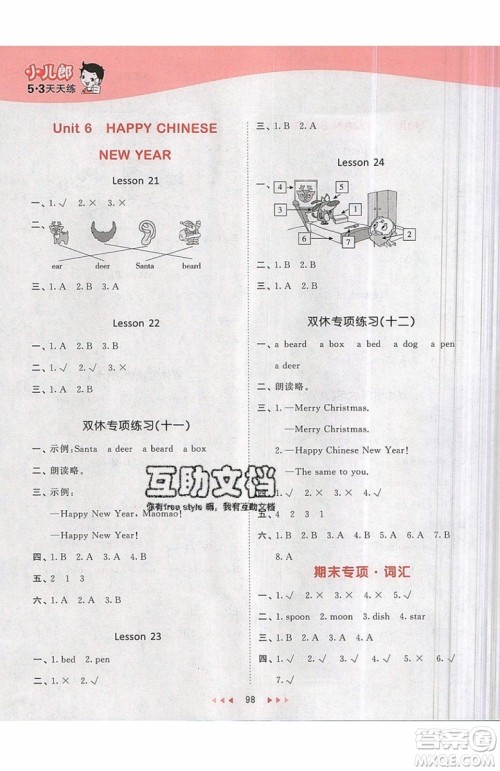 小儿郎
5·3天天练
Unit 6 HAPPY CHINESE
NEW YEAR
Lesson 21
一、1. √ 2. × 3. ×
二、
ear deer Santa beard
三、1. A 2. B
Lesson 22
一、1. B 2. A
二、1. A 2. B
三、1. A 2. B
双休专项练习(十一)
一、示例:Santa a deer a beard a box
二、朗读略。
三、示例:
—Happy New Year, Maomao!
—Happy New Year!
四、1. B 2. A 3. A
五、2 1 3
六、1. A 2. B
Lesson 23
一、1. bed 2. pen
二、1. √ 2. ×
三、1. B 2. A
Lesson 24
一、
4 5
1
3 6
2 7
二、1. B 2. A
三、1. A 2. B
双休专项练习(十二)
一、a beard a box a bed a dog a pen
a deer
二、朗读略。
三、1. —Merry Christmas.
—Merry Christmas.
2. —Happy Chinese New Year!
—The same to you.
四、1. B 2. A 3. A
五、4 2 1 3
六、1. A 2. B
期末专项·词汇
一、1. spoon 2. moon 3. dish 4. star
二、1. √ 2. × 3. √ 4. ×
三、1. B 2. A 3. B 4. A
四、1. √ 2. √ 3. × 4. √
98
互助文档
你有free style 嘛,我有互助文档
作业帮